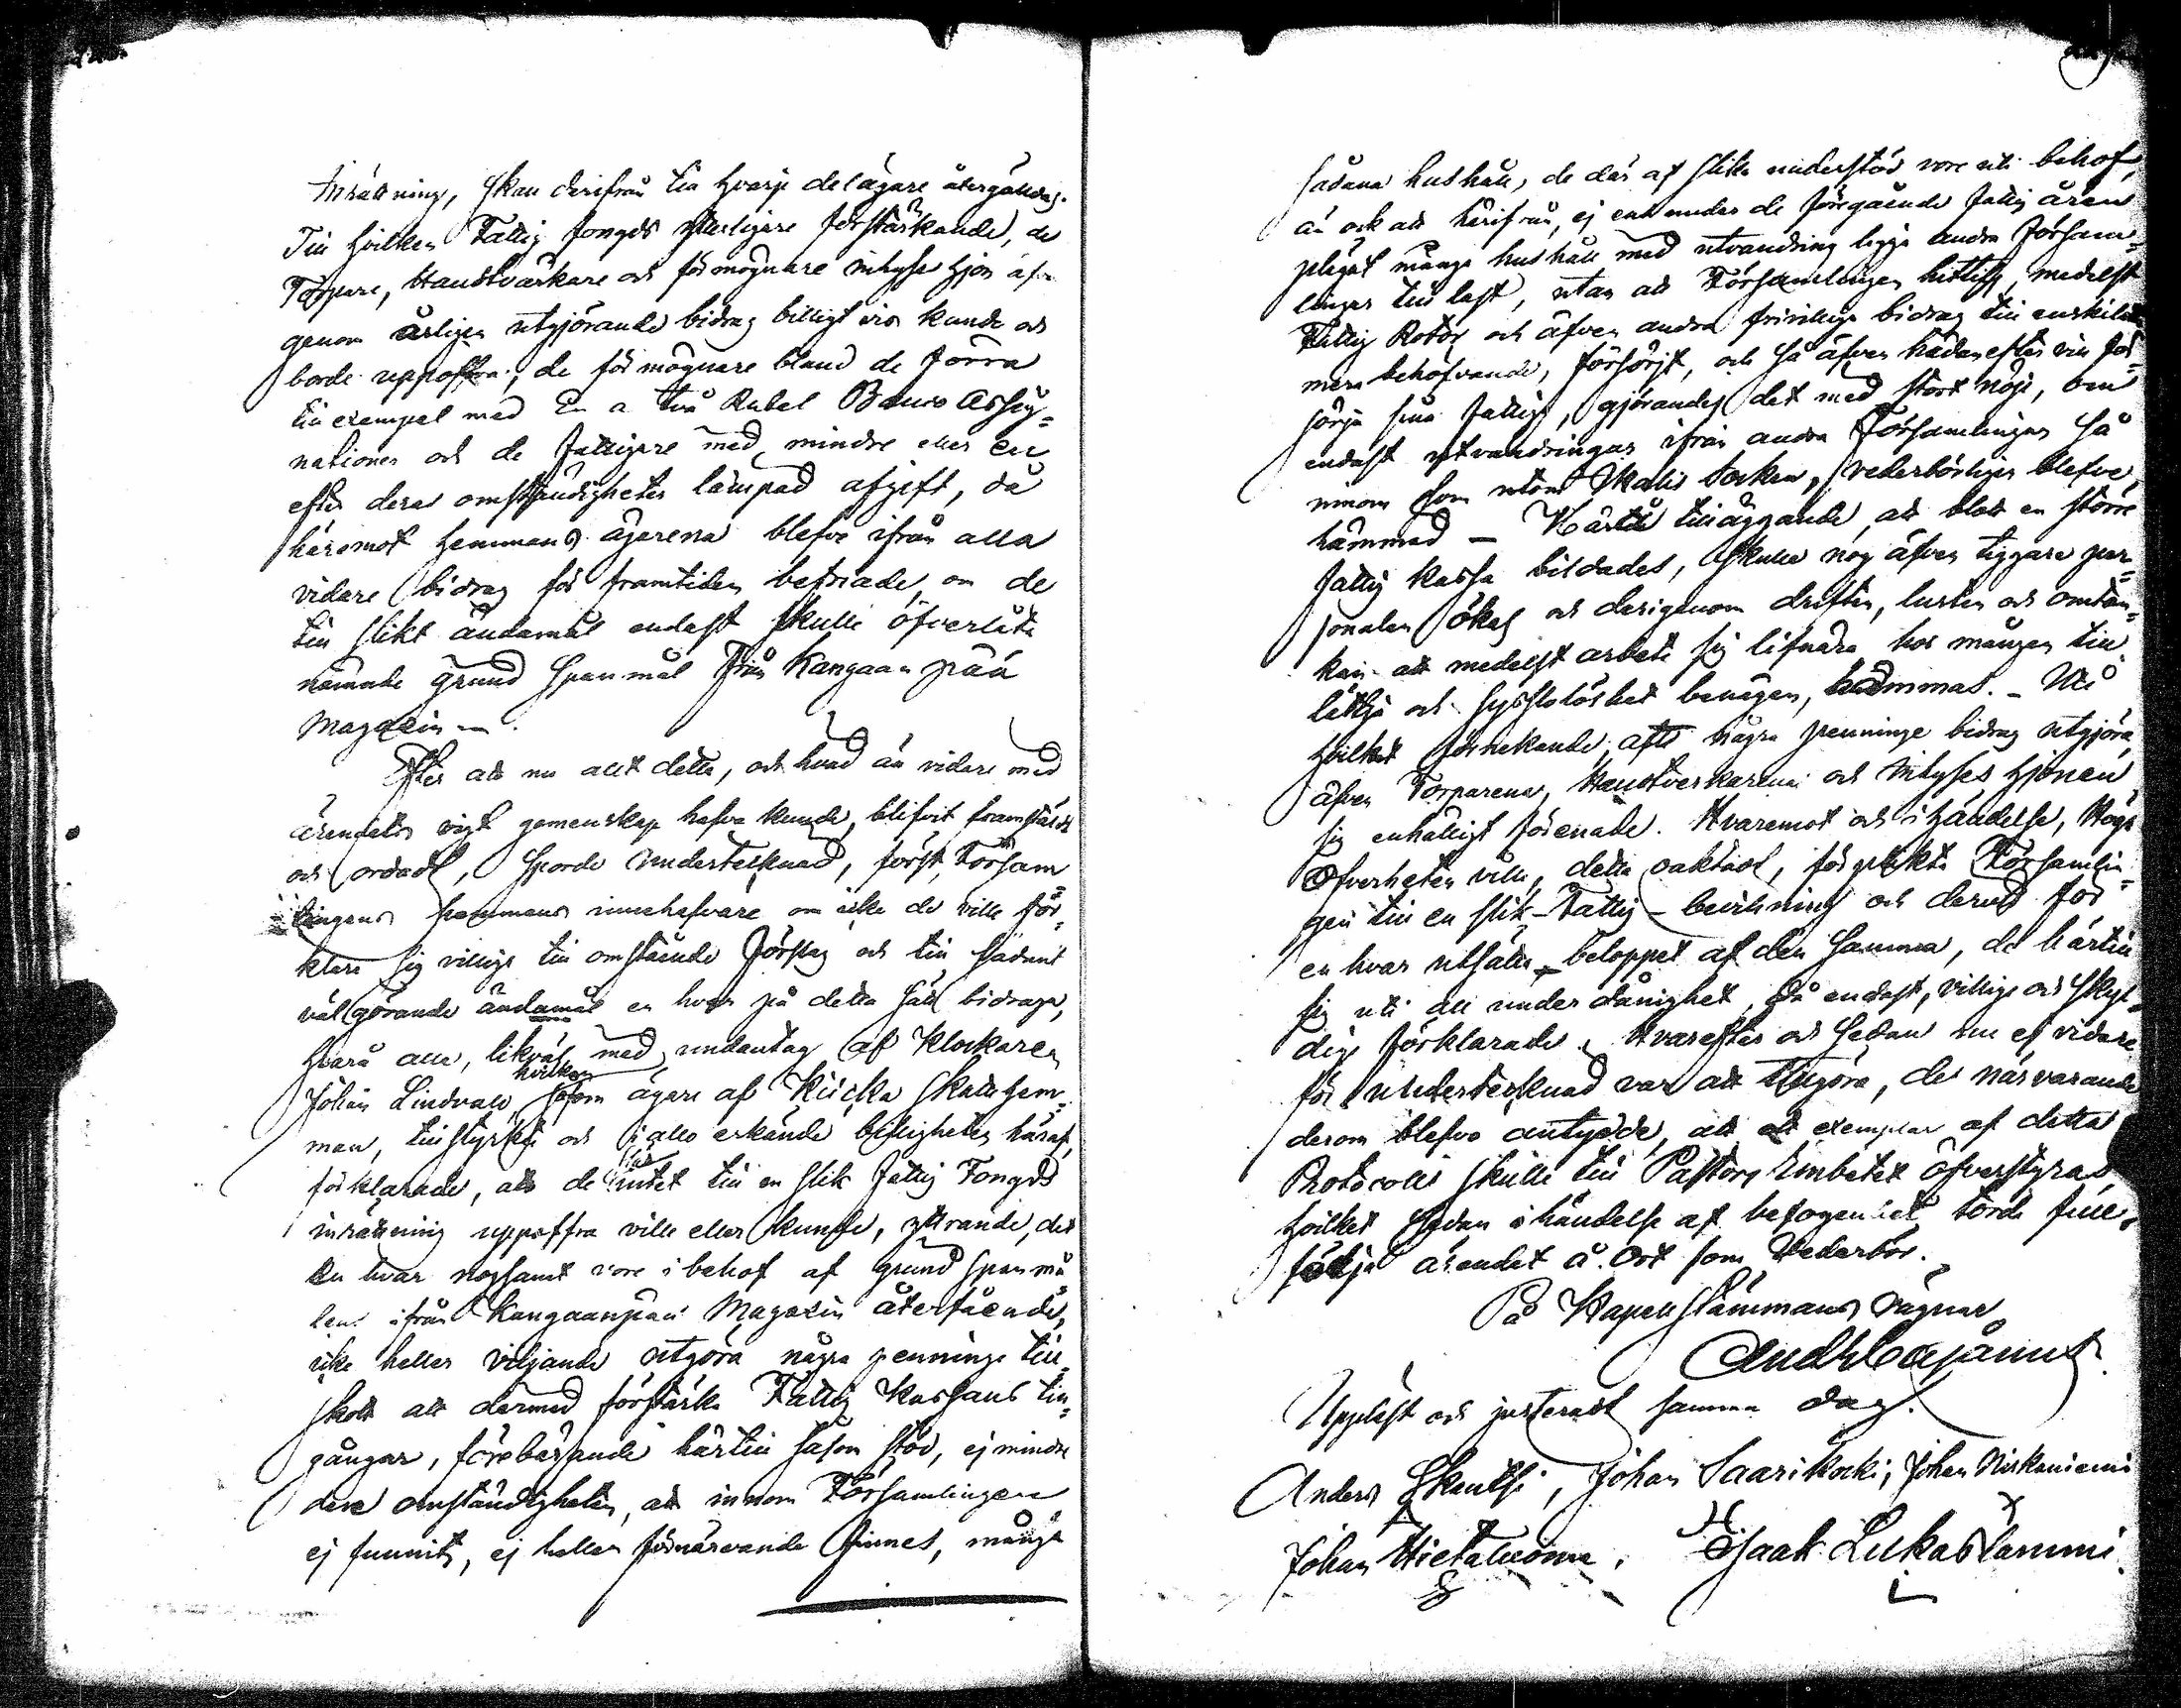 Inrättning, skall derifrån till hvarje delägare återgäldas.
Till hvilken Fattig fongds ytterligare förstärkande, de
Torpare, Handtvärkare och förmögnare inhyses hjon äfven
genom årligen utgjörande bidrag billigt vis kunde och
borde uppoffra; de förmögnare bland de förra
till exempel med En a två Rubel Banco Assig=
nationer och de fattigare med mindre eller en
efter deras omständigheter lämpad afgift, då
häremot hemmans ägarena blefve ifrån alla
vidare bidrag för framtiden befriade, om de
till slikt ändamål endast skulle öfverlåta
nämnde grund spanmål från Kangaanpää
Magazin.
Efter att nu allt detta, och hvad än vidare med
ärendets vigt gemenskap hafva kunde, blifvit framstäldt
och ordadt, sporde undertecknad, först, Försam
lingens hemmans innehafvare om icke de ville för=
klara sig villige till omstående förslag och till sådant
välgörande ändamål en hvar på detta sätt bidraga,
hvarå alla, likväl med undantag af Klockaren
Johan Lindvall, hvilken såsom ägare af Kuicka Skattehem=
man, tillstyrkte och i allo erkände billigheten häraf,
förklarade, att de intet till en slik fattig Fongds
inrättning uppoffra ville eller kunde, yttrande, det
En hvar nogsamt vore i behof af grund spanmå
len ifrån Kangaanpää Magazin återfående,
icke heller viljande utgöra några penninge till=
skott att dermed förstärka Fattig Kassans till=
gångar, förebärande härtill såsom stöd, ej mindre
den omständigheten, att innom Församlingen
ej funnits, ej heller förnärvarande finnes, många
sådana hushåll, de där af slika understöd vore uti behof,
än ock att härifrån, ej ens under de föregående fattig åren
plägat många hushåll med utvandring ligga andra Försam=
lingar till last, utan att Församlingen hittills, medelst
Fattig Rotor och äfven andra frivillige bidrag till enskildte
mera behöfvande, försörjt, och så äfven hädanefter vill för=
sörja sina fattige, görandes det med stort nöje, om
endast utvandringar ifrån andra Församlingar så
innom som utom Ikalis Socken, vederbörligen blefve
hämmad — Härtill tilläggande, att blott en större
fattig kassa bildades, skulle nog äfven tiggare per=
sonalen ökas och derigenom driften, lusten och omtän=
kan att medelst arbete sig lifnära hos mången till
lättja och sysslolöshet benägen, hämmas. — Uti
hvilket förnekande, att några penninge bidrag utgjöra,
äfven Torparena, Handtverkarena och Inhyses hjonen
sig enhälligt förenade. Hvaremot och i händelse, Höga
Öfverheten ville, detta oaktadt, förplikta Församlin=
gen till en slik Fattig bevillning och dervid för
en hvar utsätta beloppet af den samma, de härtill
sig uti all underdånighet, då endast, villige och skyl=
dige förklarade. Hvarefter och sedan nu ej vidare
för undertecknad var att tillgöra, de närvarande
derom blefvo antydde, att ett exemplar af detta
Protocoll skulle till Pastors Embetet öfverstyras,
hvilket sedan i händelse af befogenhet torde full=
följa ärendet å ort som Vederbör.
På Kapell Stämmans vägnar
And: Cajanus
Uppläst och justeradt samma dag.
Anders Skantsi, Johan Saarikoski, Johan Niskaniemi
Johan Hietaluoma. Isaak Lukaslammi.